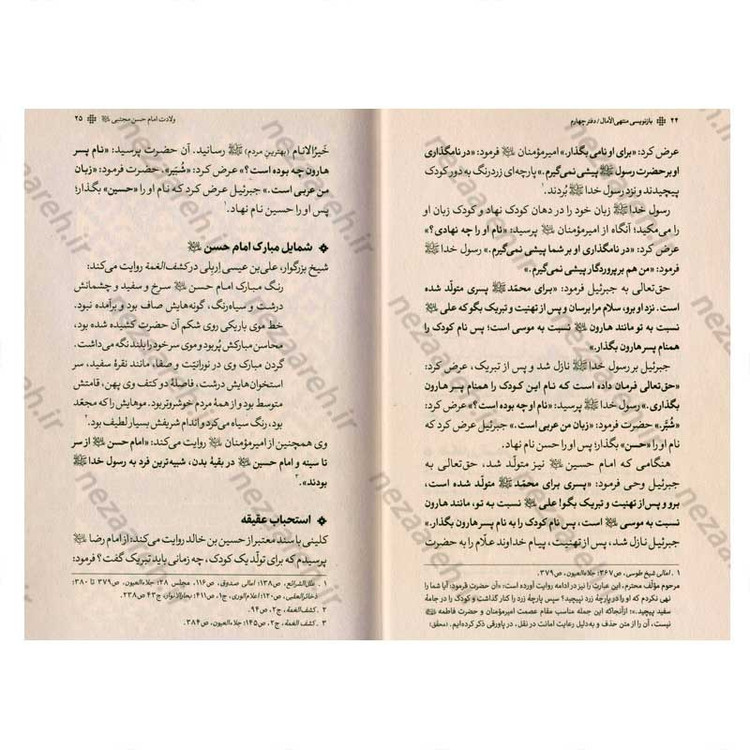 ۲۴ بازنویسی منتهی الآمال / دفتر چهارم
عرض کرد: «برای او نامی بگذار.» امیرمؤمنان ﷺ فرمود: «در نامگذاری
او بر حضرت رسول ﷺ پیشی نمی‌گیرم.» پارچه‌ای زردرنگ به دور کودک
پیچیدند و نزد رسول خدا ﷺ بُردند.۱
رسول خدا ﷺ زبان خود را در دهان کودک نهاد و کودک زبان او
را می‌مکید؛ آنگاه از امیرمؤمنان ﷺ پرسید: «نام او را چه نهادی؟»
عرض کرد: «در نامگذاری او بر شما پیشی نمی‌گیرم.» رسول خدا ﷺ
فرمود: «من هم بر پروردگار پیشی نمی‌گیرم.»
حق‌تعالی به جبرئیل فرمود: «برای محمّد ﷺ پسری متولّد شده
است. نزد او برو، سلام مرا برسان و پس از تهنیت و تبریک بگو که علی ﷺ
نسبت به تو مانند هارون ﷺ نسبت به موسی است؛ پس نام کودک را
همنام پسر هارون بگذار.»
جبرئیل بر رسول خدا ﷺ نازل شد و پس از تبریک، عرض کرد:
«حق‌تعالی فرمان داده است که نام این کودک را همنام پسر هارون
بگذاری.» رسول خدا ﷺ پرسید: «نام او چه بوده است؟» عرض کرد:
«شُبَّر». حضرت فرمود: «زبان من عربی است.» جبرئیل عرض کرد که
نام او را «حسن» بگذار؛ پس او را حسن نام نهاد.
هنگامی که امام حسین ﷺ نیز متولّد شد، حق‌تعالی به
جبرئیل وحی فرمود: «پسری برای محمّد ﷺ متولّد شده است،
برو و پس از تهنیت و تبریک بگو! علی ﷺ نسبت به تو، مانند هارون
نسبت به موسی ﷺ است، پس نام کودک را به نام پسر هارون بگذار.»
جبرئیل نازل شد، پس از تهنیت، پیام خداوند علّام را به حضرت
۱. امالی شیخ طوسی، ص۳۶۷؛ جلاءالعیون، ص۳۷۹.
مرحوم مؤلّف محترم، این عبارت را نیز در ادامه روایت آورده است: «آن حضرت فرمود: آیا شما را
نهی نکردم که او را در پارچهٔ زرد نپیچید؟ سپس پارچهٔ زرد را کنار گذاشت و کودک را در جامهٔ
سفید پیچید.» ازآنجاکه این جمله مناسب مقام عصمت امیرمؤمنان و حضرت فاطمه ﷺ
نیست، آن را از متن حذف و به‌دلیل رعایت امانت در نقل، در پاورقی ذکر کرده‌ایم. (محقق)
ولادت امام حسن مجتبی ﷺ ۲۵
خَیرُالانام (بهترینِ مردم) ﷺ رسانید. آن حضرت پرسید: «نام پسر
هارون چه بوده است؟» عرض کرد: «شُبَیر». حضرت فرمود: «زبان
من عربی است.» جبرئیل عرض کرد که نام او را «حسین» بگذار؛
پس او را حسین نام نهاد.۱
شمایل مبارک امام حسن ﷺ
شیخ بزرگوار، علی بن عیسی اِربِلی در کشف‌الغمة روایت می‌کند:
رنگ مبارک امام حسن ﷺ سرخ و سفید و چشمانش
درشت و سیاه‌رنگ، گونه‌هایش صاف بود و برآمده نبود.
خط موی باریکی روی شکم آن حضرت کشیده شده بود،
محاسن مبارکش پُر بود و موی سر خود را بلند نگه می‌داشت.
گردن مبارک وی در نورانیّت و صفا، مانند نقرهٔ سفید، سر
استخوان‌هایش درشت، فاصلهٔ دو کتف وی پهن، قامتش
متوسط بود و از همهٔ مردم خوشروتر بود. موهایش را که مجعّد
بود، رنگ سیاه می‌کرد و اندام شریفش بسیار لطیف بود.۲
وی همچنین از امیرمؤمنان ﷺ روایت می‌کند: «امام حسن ﷺ از سر
تا سینه و امام حسین ﷺ در بقیهٔ بدن، شبیه‌ترین فرد به رسول خدا ﷺ
بودند.»۳
استحباب عقیقه
کلینی با سند معتبر از حسین بن خالد روایت می‌کند: از امام رضا ﷺ
پرسیدم که برای تولّد یک کودک، چه زمانی باید تبریک گفت؟ فرمود:
۱. علل‌الشرائع، ص۱۳۸؛ امالی صدوق، ص۱۱۶، مجلس ۲۸؛ جلاءالعیون، ص۳۷۹ تا ۳۸۰؛
ذخائرالعقبی، ص۱۲۰؛ اعلام‌الوری، ج۱، ص۴۱۱؛ بحارالانوار، ج۴۳ ص۲۳۸.
۲. کشف‌الغمة، ج۲، ص۹۴.
۳. کشف الغمّة، ج۲، ص۱۴۵؛ جلاءالعیون، ص۳۸۴.
nezaareh.ir